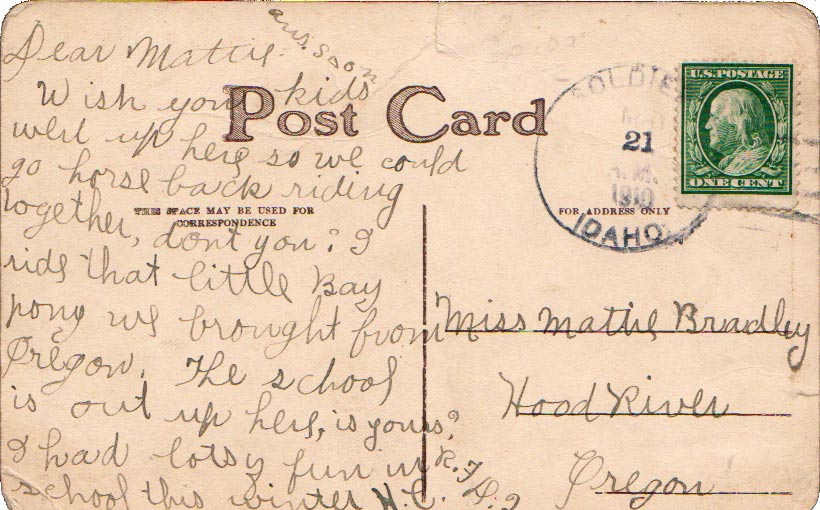 ans. soon
Dear Mattie.
Wish you kids
were up here so we could
go horse back riding
together, dont you? I
ride that little Bay
pony we brought from
Oregon. The school
is out up here, is yours?
I had lots y fun in
school this winter H.C.
Post Card
THIS SPACE MAY BE USED FOR
CORRESPONDENCE
FOR ADDRESS ONLY
SOLDIE
21
A.M.
1910
IDAHO
U.S. POSTAGE
ONE CENT
Miss Mattie Bradley
Hood River
Oregon
R.F.D. 2